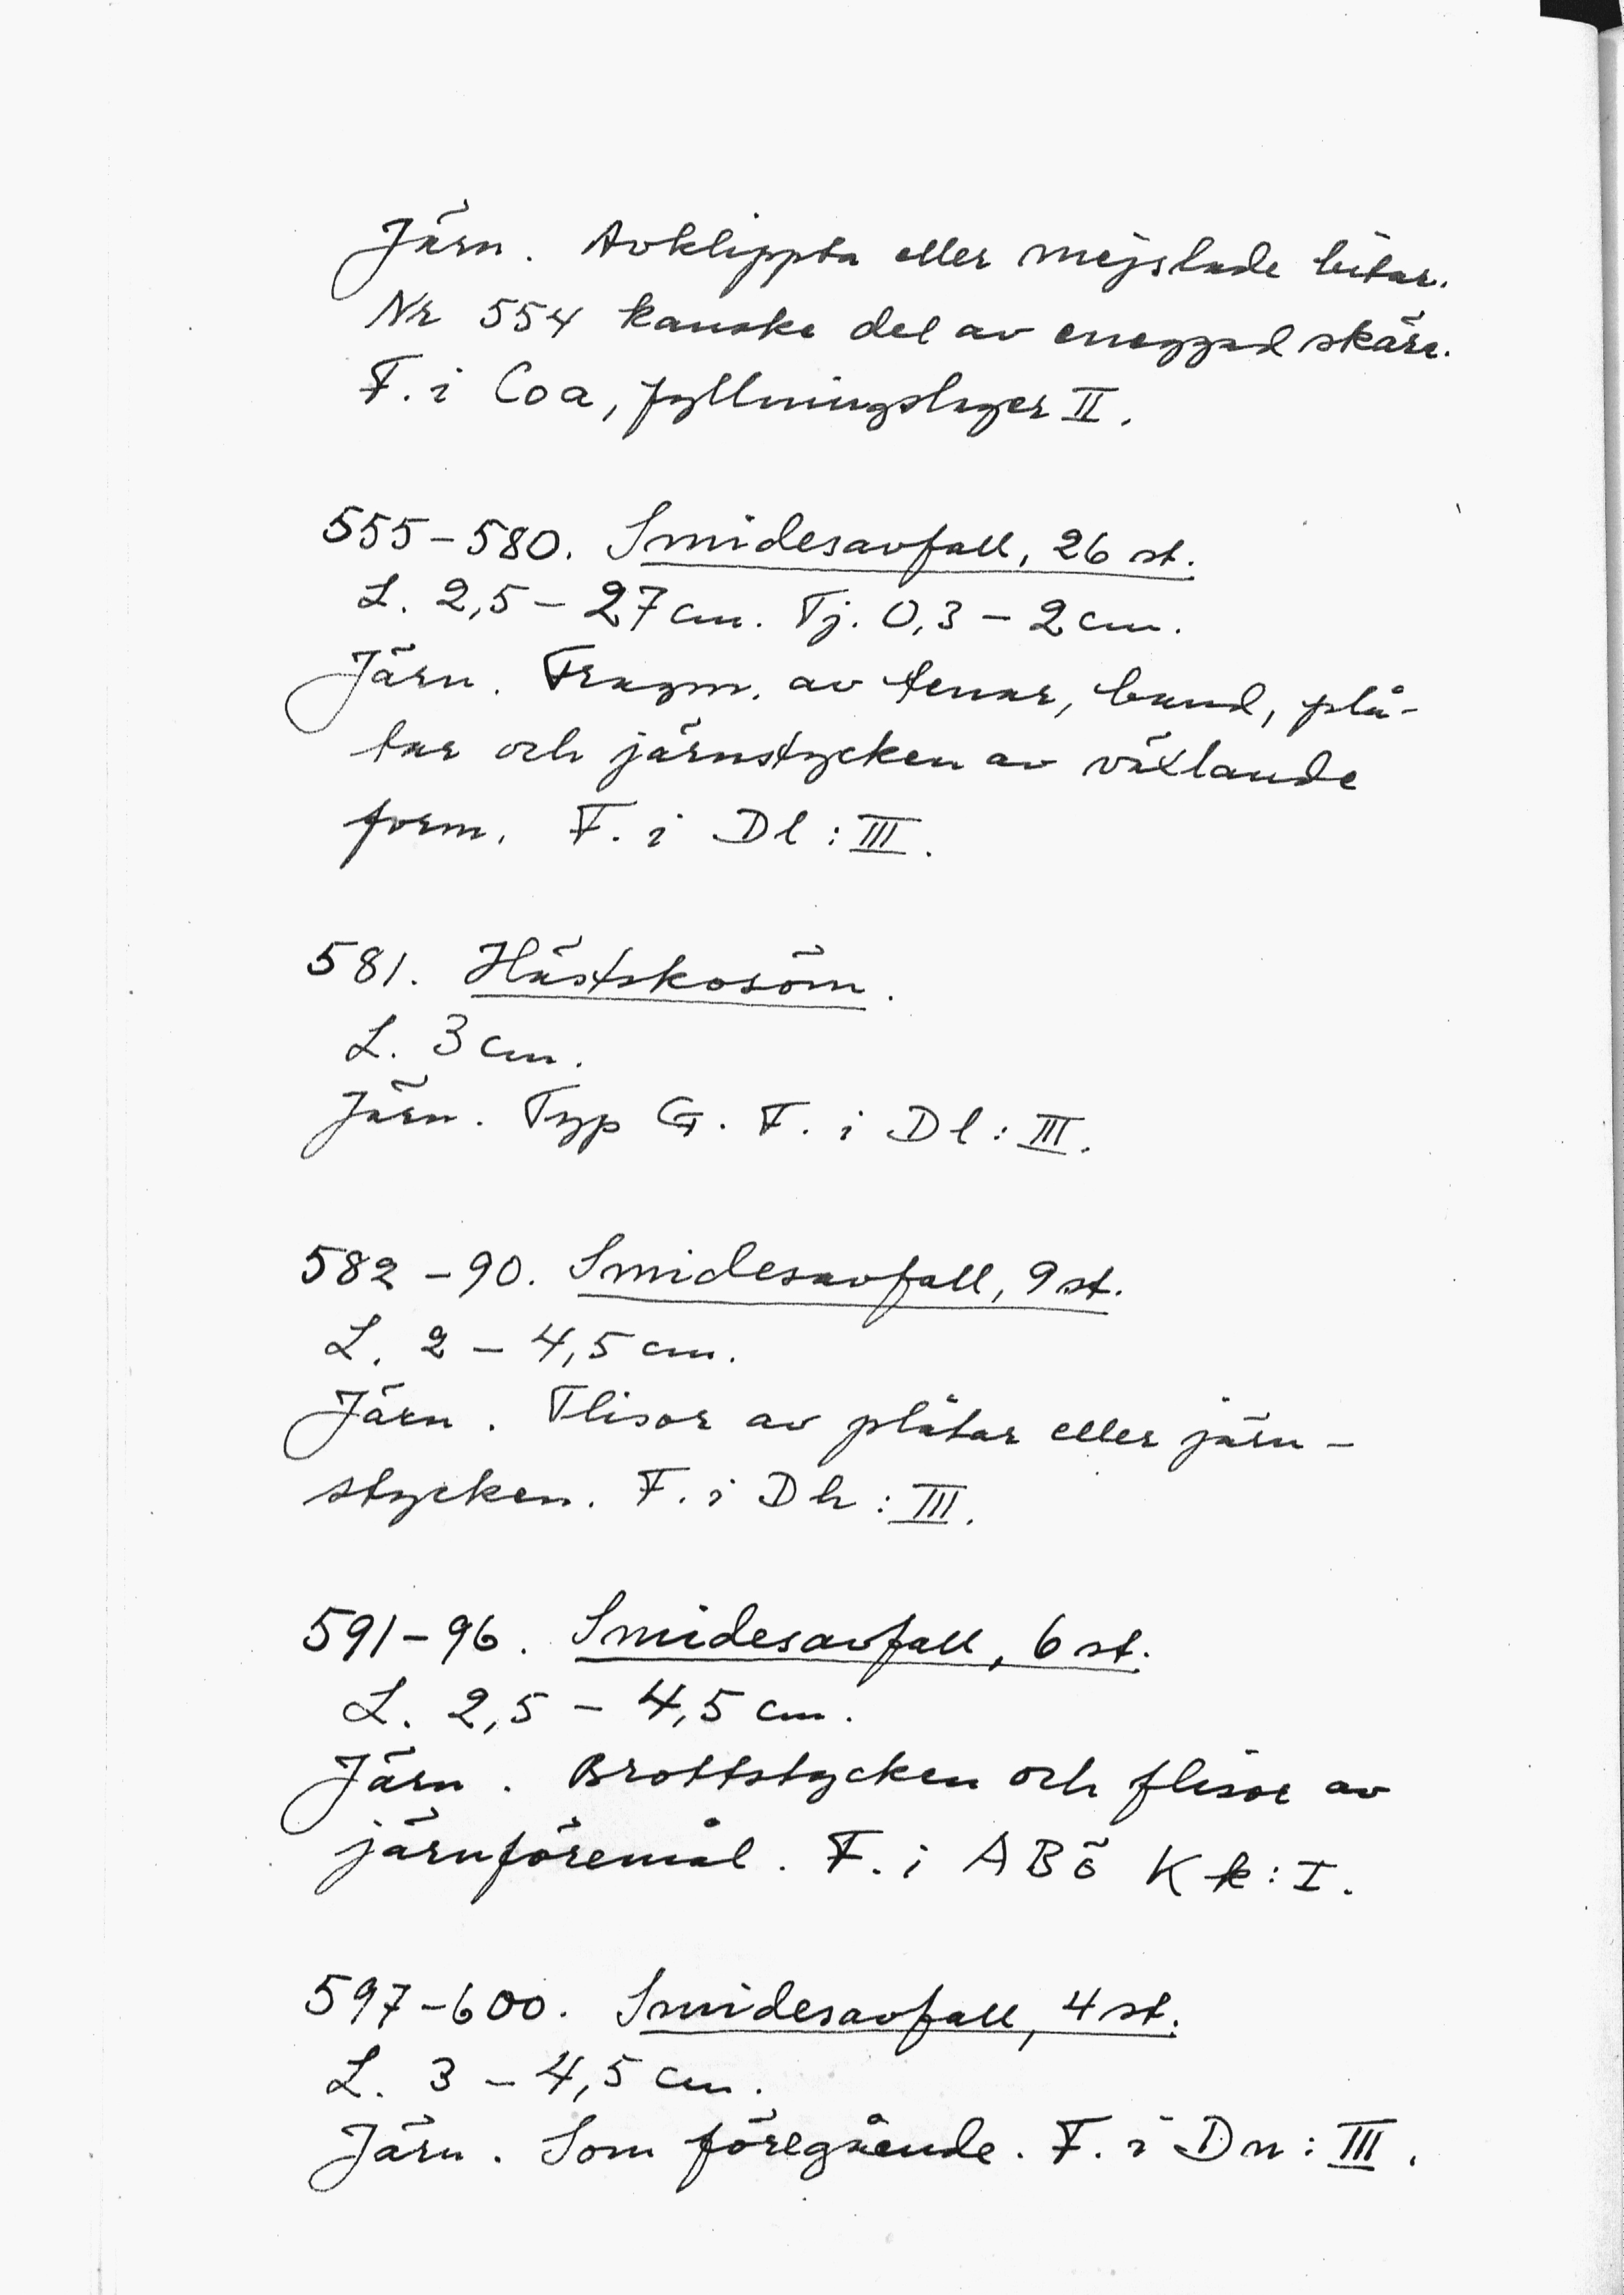 Järn. Avklippta eller mejslade bitar.
Nr 554 kanske del av eneggad skära.
F. i Coa, fyllningslager II.
555-580. Smidesavfall, 26 st.
L. 2,5 - 27 cm. Tj. 0,3 - 2 cm.
Järn. Fragm. av tenar, band, plå-
tar och järnstycken av växlande
form. F. i Dl : III.
581. Hästskosöm.
L. 3 cm.
Järn. Typ G. F. i Dl : III.
582-90. Smidesavfall, 9 st.
L. 2 - 4,5 cm.
Järn. Flisor av plåtar eller järn-
stycken. F. i Dh : III.
591-96. Smidesavfall, 6 st.
L. 2,5 - 4,5 cm.
Järn. Brottstycken och flisor av
järnföremål. F. i ABö Kk : I.
597-600. Smidesavfall, 4 st.
L. 3 - 4,5 cm.
Järn. Som föregående. F. i Dn : III.